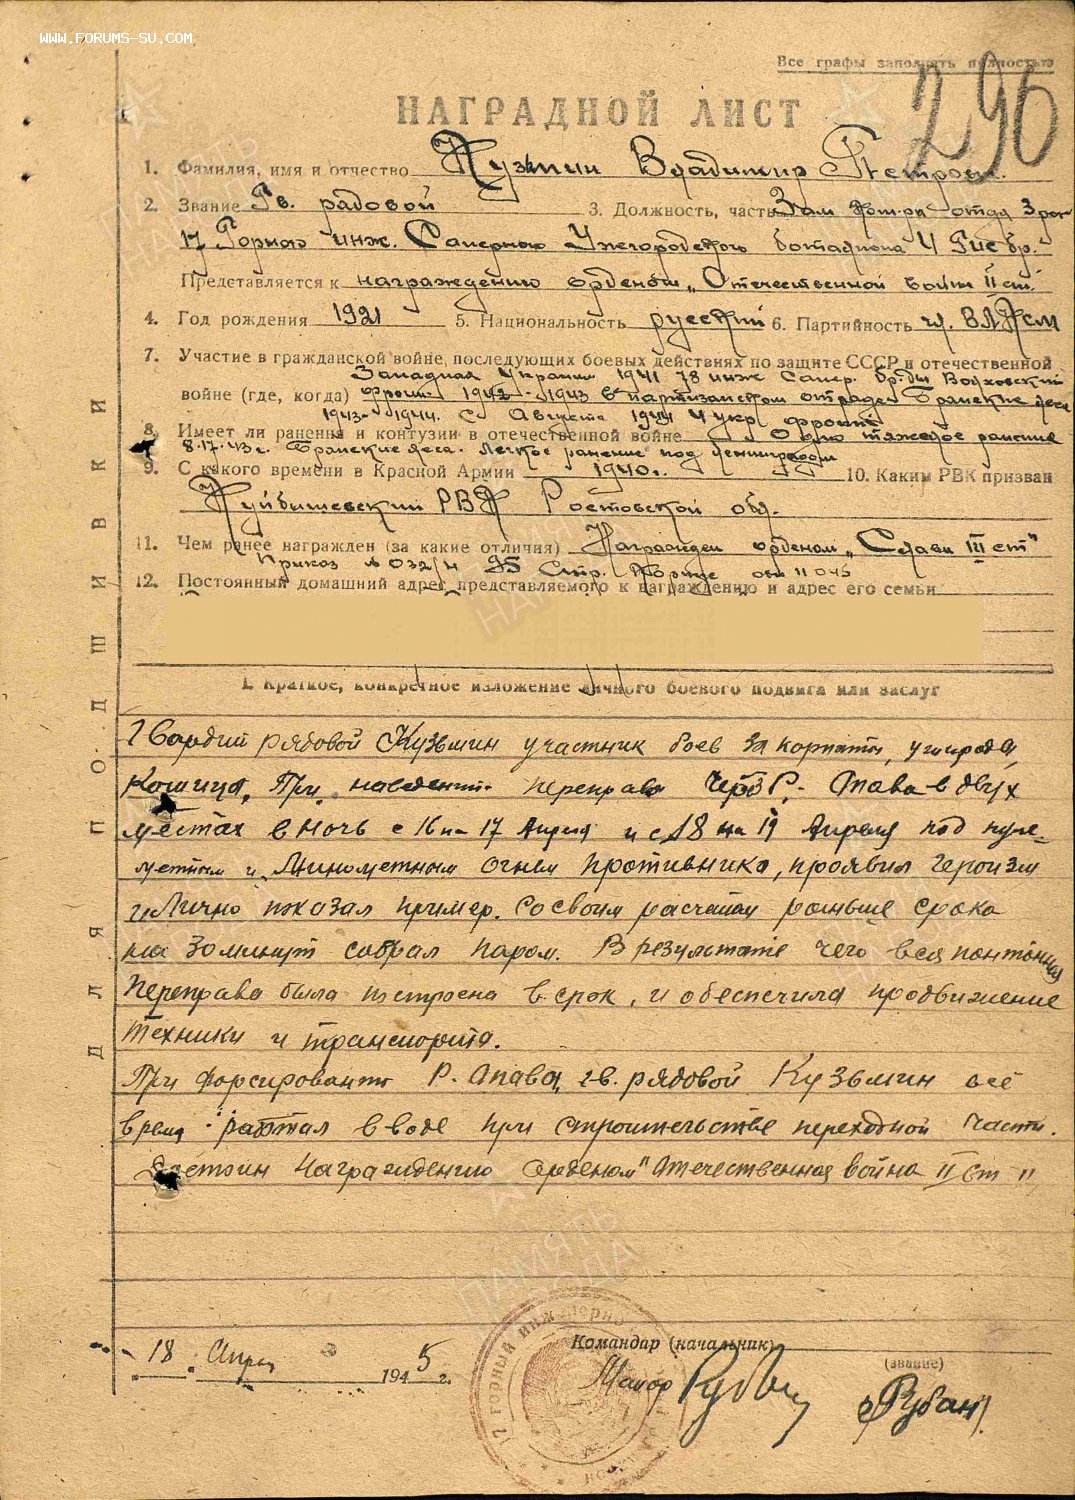 WWW.FORUMS-SU.COM
Все графы заполнять полностью
296
НАГРАДНОЙ ЛИСТ
1. Фамилия, имя и отчество Кузьмин Владимир Петрович.
2. Звание Гв. рядовой 3. Должность, часть Зам ком-ра отд 3 роты
17 Горного инж. Саперного Ужгородского батальона 4 Гисбр.
Представляется к награждению орденом „Отечественной войны II ст.
4. Год рождения 1921 5. Национальность русский 6. Партийность чл. ВЛКСМ
7. Участие в гражданской войне, последующих боевых действиях по защите СССР и отечественной
Западная Украина 1941 78 инж Сапер. бр-ды Волховский
войне (где, когда) фронт 1942 - 1943 в партизанском отряде Брянские леса
1943-1944. с Августа 1944 4 укр. фронт
8. Имеет ли ранения и контузии в отечественной войне Одно тяжелое ранение
8.17.43 г. Брянские леса. Легкое ранение под Ленинградом
9. С какого времени в Красной Армии 1940г. 10. Каким РВК призван
Куйбышевский РВК Ростовской обл.
11. Чем ранее награжден (за какие отличия) Награжден орденом „Слава III ст"
Приказ № 032/н 95 Стр. Корпус
12. Постоянный домашний адрес представляемого к награждению и адрес его семьи
I. Краткое, конкретное изложение личного боевого подвига или заслуг
Гвардий рядовой Кузьмин участник боев за карпаты, ужгорода,
Кошица. При наведении переправы через Р. Опава в двух
местах в ночь с 16 на 17 Апреля и с 18 на 19 Апреля под пуле-
метным и Минометным огнем противника, проявил героизм
и Лично показал пример. Со своим расчетом раньше срока
на 30 минут собрал паром. В результате чего вся понтонная
Переправа была построена в срок, и обеспечила продвижение
техники и транспорта.
При форсировании р. Опава, гв. рядовой Кузьмин всё
время работал в воде при строительстве переходной части.
Достоин Награждению орденом "Отечественная война II ст"
18 Апрел 1945 г.
Командир (начальник)
(звание)
Майор
/Рубан/
17 горный инженерно
ДЛЯ ПОДШИВКИ
ПАМЯТЬ НАРОДА